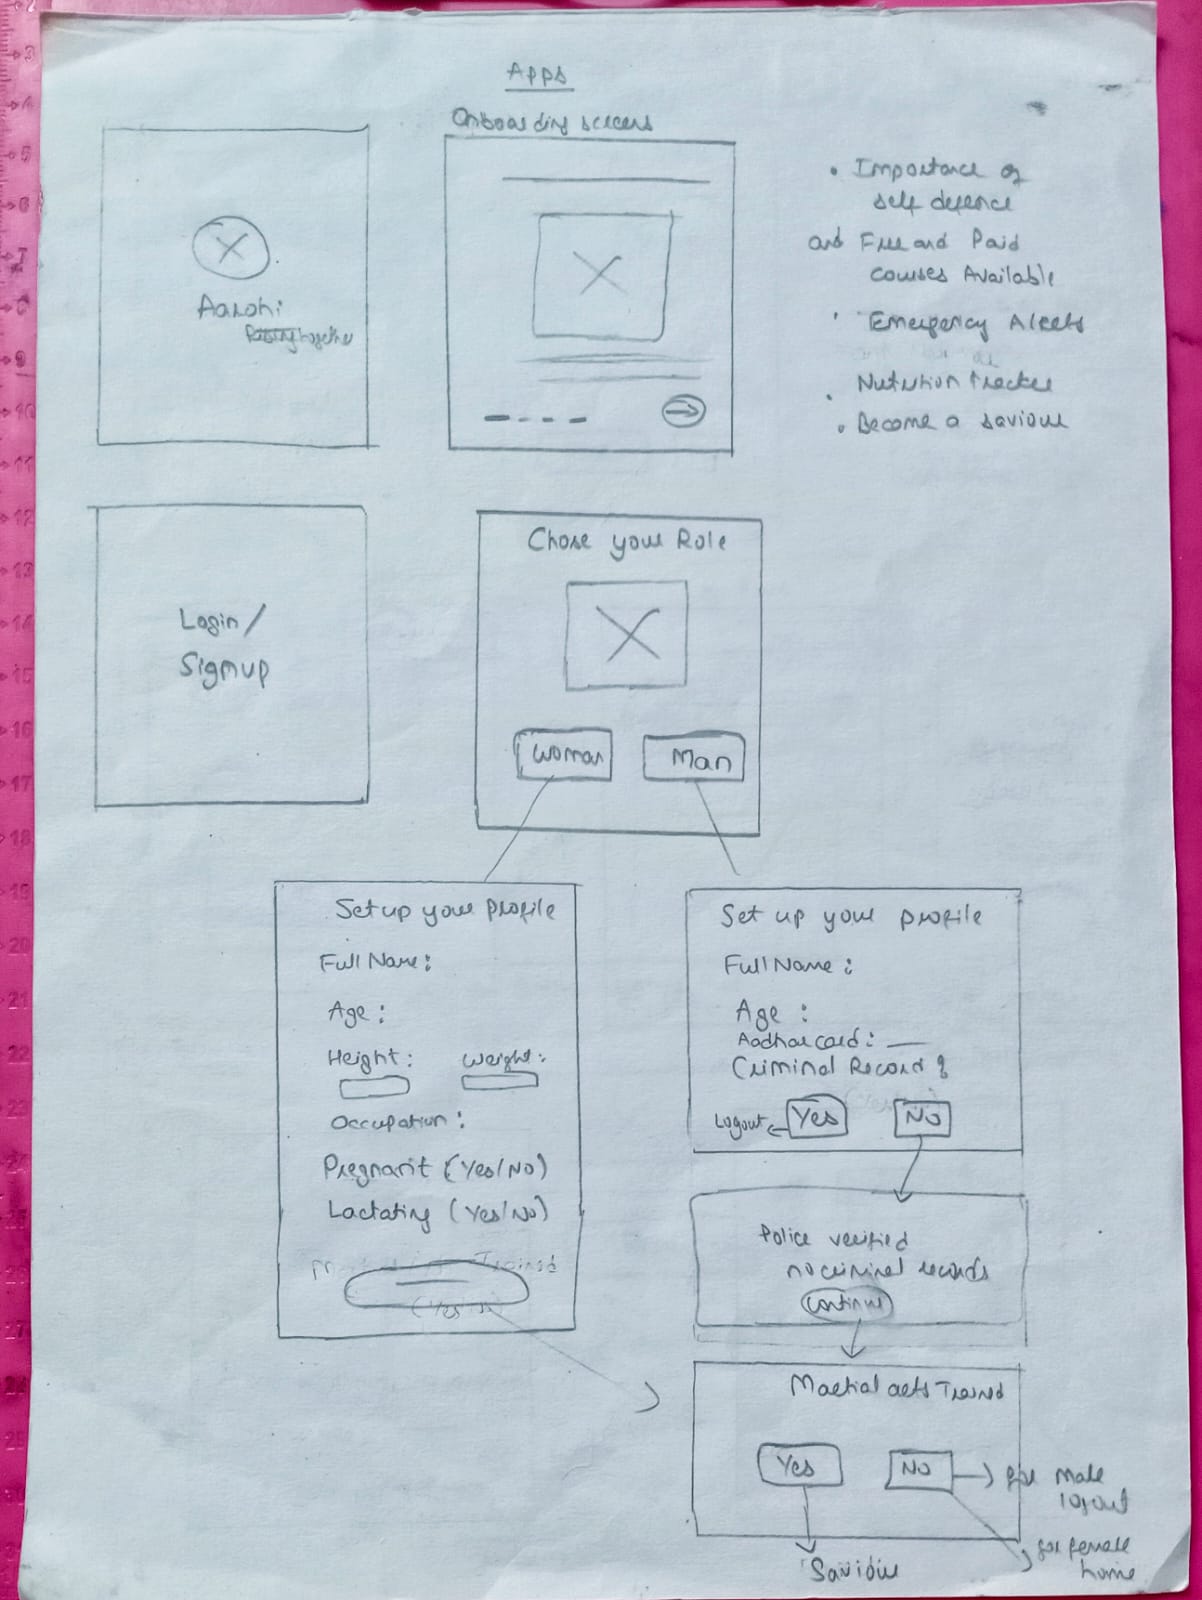 Apps
Onboarding screens
Aarohi
• Importance of
self defence
and Free and Paid
courses Available
• Emergency Alerts
• Nutrition tracker
• Become a saviour
Login/
Signup
Chose your Role
Woman
Man
Set up your Profile
Full Name:
Age:
Height: Weight:
Occupation:
Pregnant (Yes/No)
Lactating (Yes/No)
Set up your profile
Full Name:
Age:
Aadhar card:
Criminal Record?
Logout
Yes
No
Police verified
no criminal records
Continue
Martial arts Trained
Yes
No
for male
logout
for female
home
Saviour